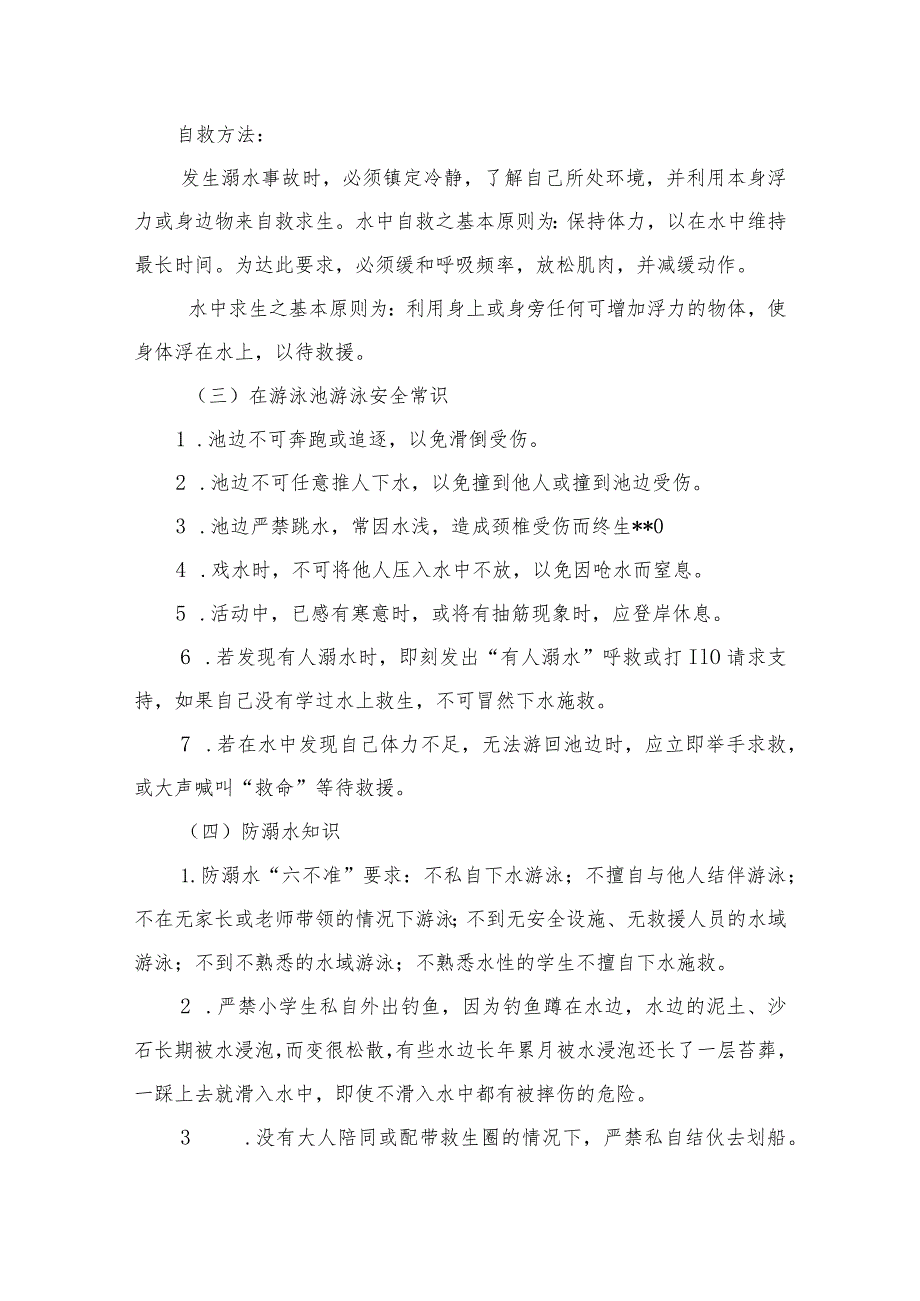 自救方法：
发生溺水事故时，必须镇定冷静，了解自己所处环境，并利用本身浮
力或身边物来自救求生。水中自救之基本原则为：保持体力，以在水中维持
最长时间。为达此要求，必须缓和呼吸频率，放松肌肉，并减缓动作。
水中求生之基本原则为：利用身上或身旁任何可增加浮力的物体，使
身体浮在水上，以待救援。
（三）在游泳池游泳安全常识
1 .池边不可奔跑或追逐，以免滑倒受伤。
2 .池边不可任意推人下水，以免撞到他人或撞到池边受伤。
3 .池边严禁跳水，常因水浅，造成颈椎受伤而终生**0
4 .戏水时，不可将他人压入水中不放，以免因呛水而窒息。
5 .活动中，已感有寒意时，或将有抽筋现象时，应登岸休息。
6 .若发现有人溺水时，即刻发出“有人溺水”呼救或打 I10 请求支
持，如果自己没有学过水上救生，不可冒然下水施救。
7 .若在水中发现自己体力不足，无法游回池边时，应立即举手求救，
或大声喊叫“救命”等待救援。
（四）防溺水知识
1.防溺水“六不准”要求：不私自下水游泳；不擅自与他人结伴游泳；
不在无家长或老师带领的情况下游泳；不到无安全设施、无救援人员的水域
游泳；不到不熟悉的水域游泳；不熟悉水性的学生不擅自下水施救。
2 .严禁小学生私自外出钓鱼，因为钓鱼蹲在水边，水边的泥土、沙
石长期被水浸泡，而变很松散，有些水边长年累月被水浸泡还长了一层苔葬，
一踩上去就滑入水中，即使不滑入水中都有被摔伤的危险。
3 .没有大人陪同或配带救生圈的情况下，严禁私自结伙去划船。